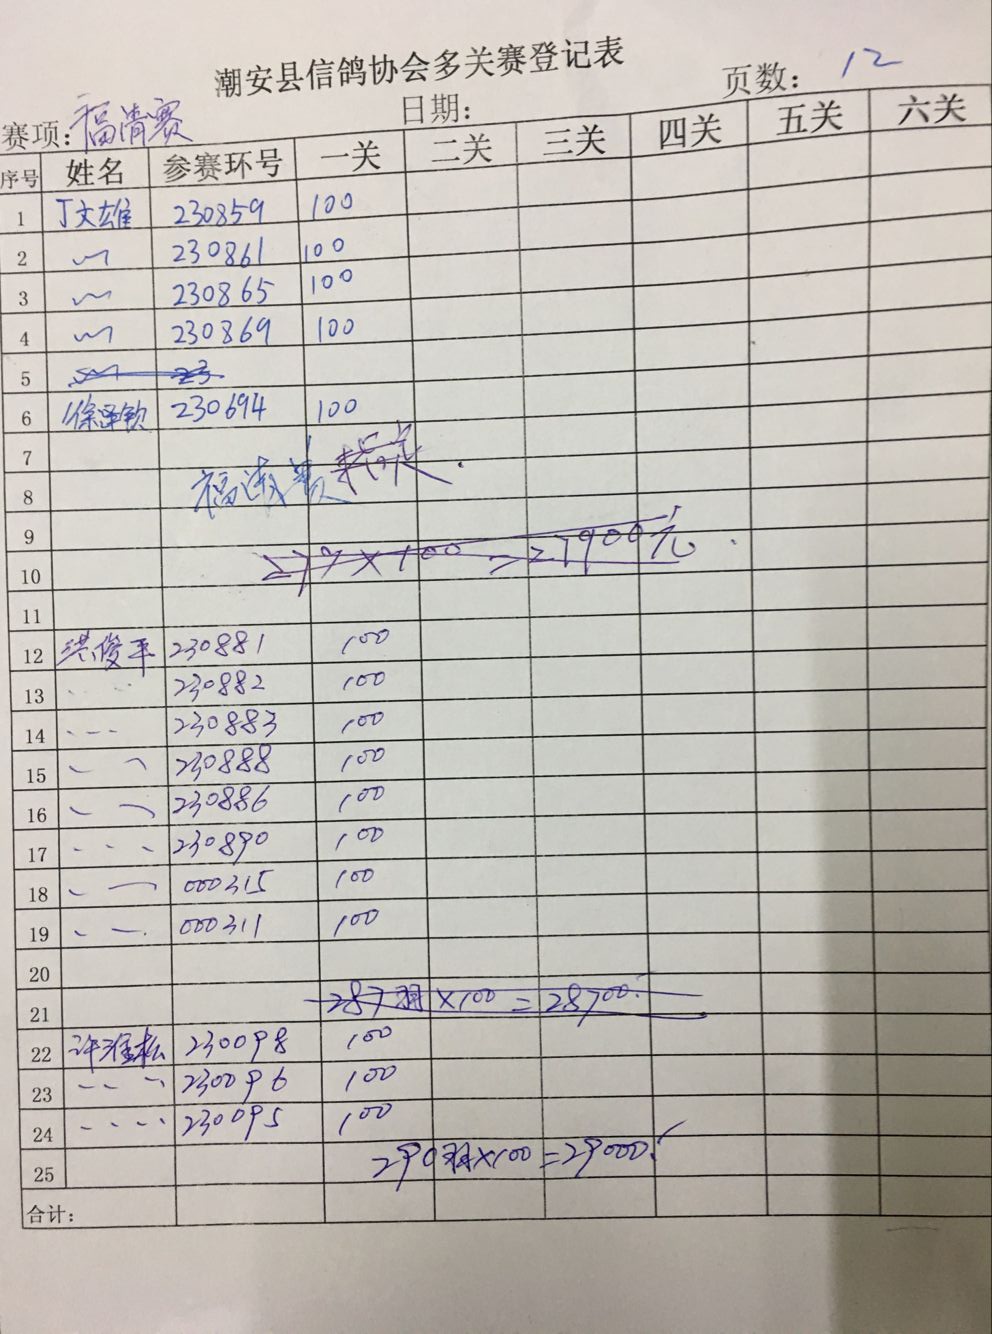 潮安县信鸽协会多关赛登记表
赛项: 福清赛 日期: 页数: 12
序号 姓名 参赛环号 一关 二关 三关 四关 五关 六关
1 丁文雄 230859 100
2 〃 230861 100
3 〃 230865 100
4 〃 230869 100
5 〃 23
6 徐泽钦 230694 100
7
8 福清赛指定.
9
10 279×100=27900元.
11
12 洪俊平 230881 100
13 230882 100
14 230883 100
15 230888 100
16 230886 100
17 230890 100
18 000315 100
19 000311 100
20
21 287羽×100=28700.
22 许淮松 230098 100
23 230096 100
24 230095 100
25 290羽×100=29000.
合计: